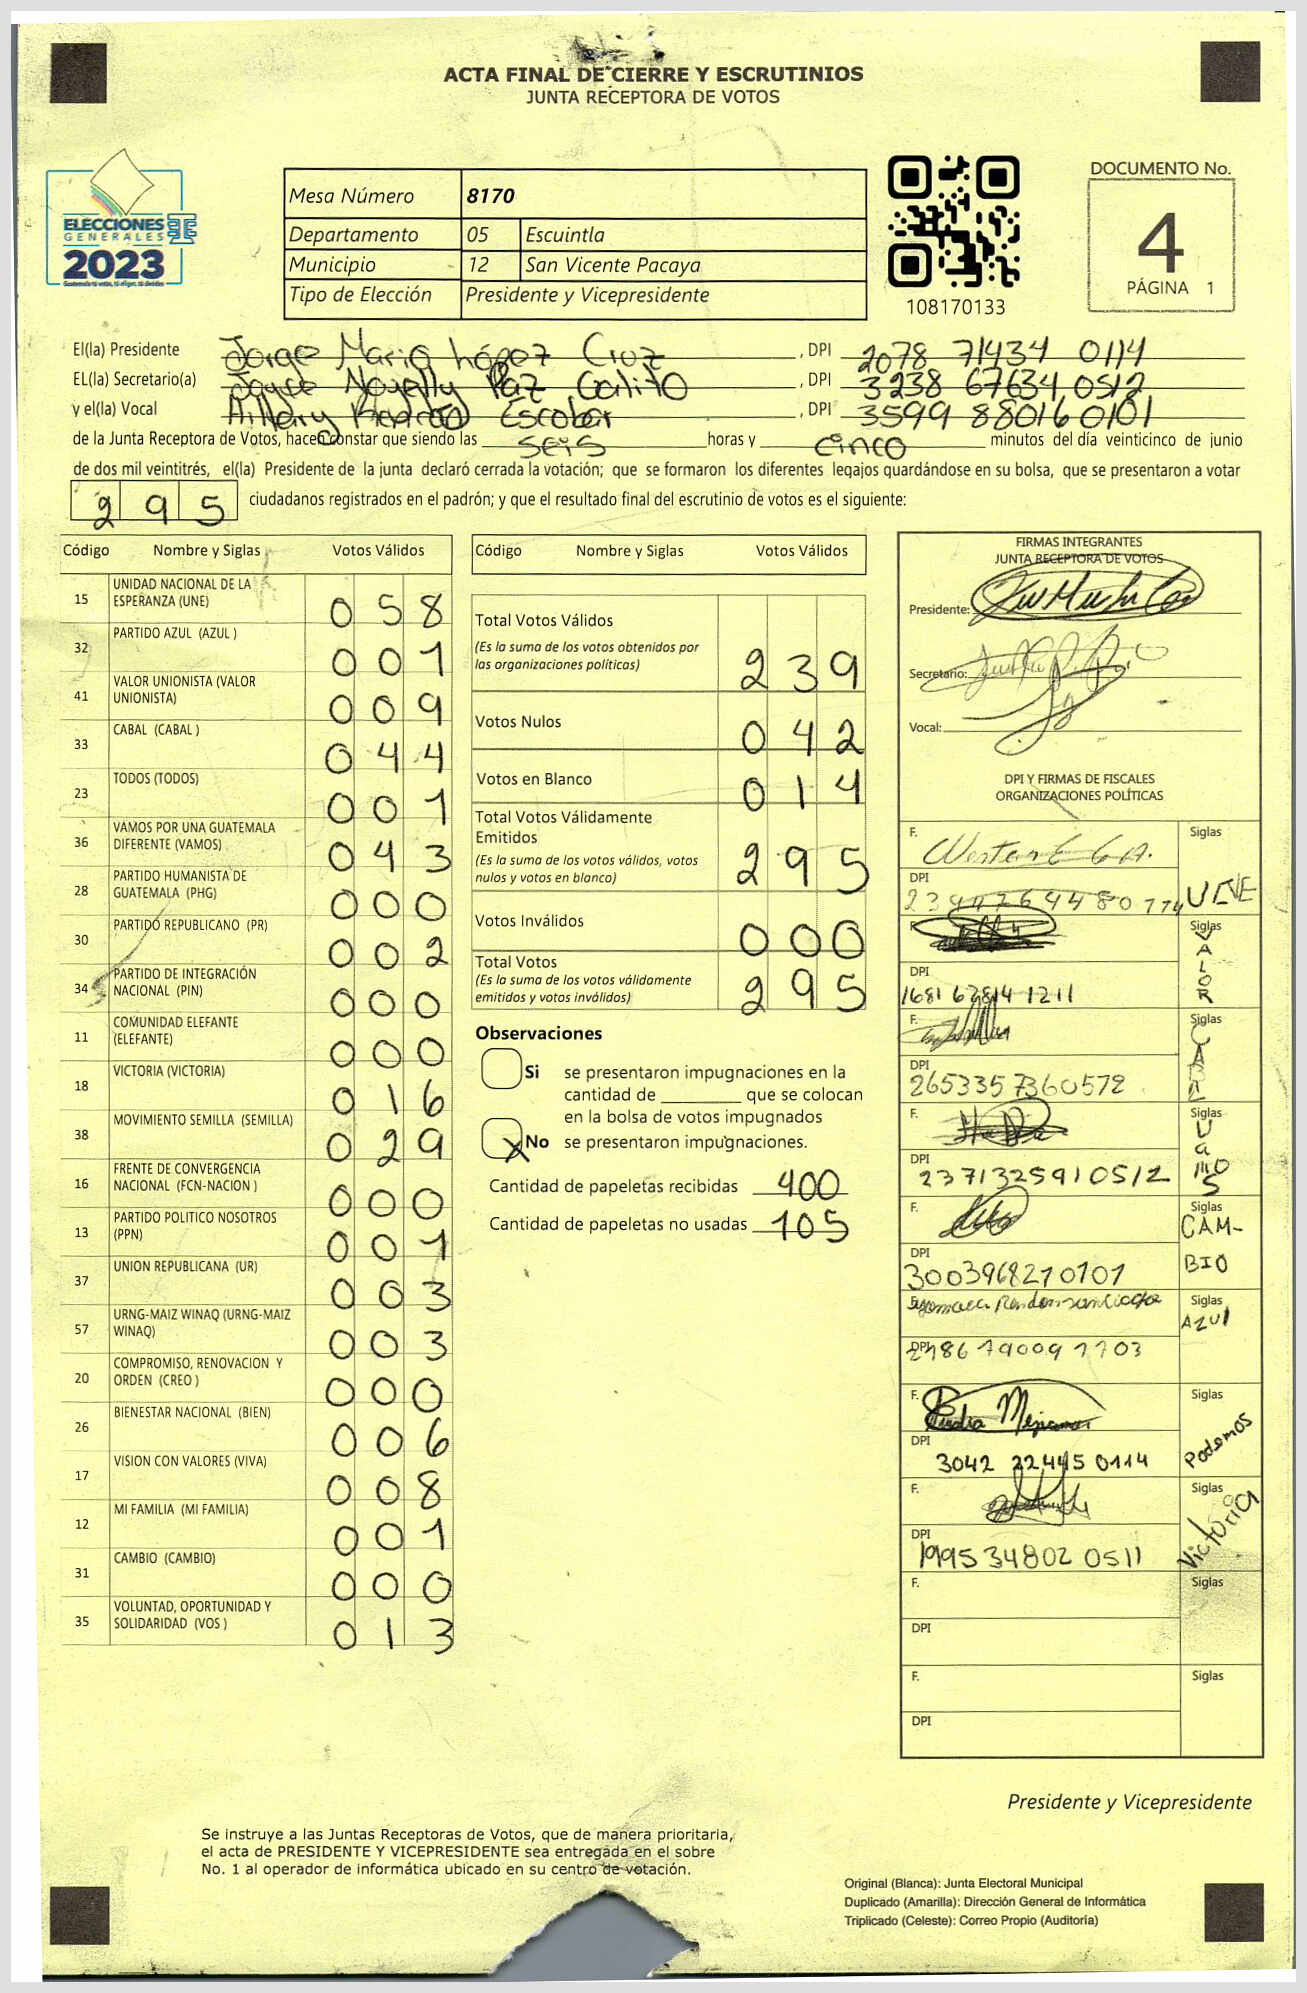 ACTA FINAL DE CIERRE Y ESCRUTINIOS
JUNTA RECEPTORA DE VOTOS
ELECCIONES
GENERALES
2023
Mesa Número 8170
Departamento 05 Escuintla
Municipio 12 San Vicente Pacaya
Tipo de Elección Presidente y Vicepresidente
108170133
DOCUMENTO No.
4
PÁGINA 1
El(la) Presidente Jorge Mario López Cruz , DPI 2078 71434 0114
EL(la) Secretario(a) Joyce Noyelly Paz , DPI 3238 67634 0512
y el(la) Vocal Escobar , DPI 3599 88016 0101
de la Junta Receptora de Votos, hacen constar que siendo las seis horas y cinco minutos del día veinticinco de junio
de dos mil veintitrés, el(la) Presidente de la junta declaró cerrada la votación; que se formaron los diferentes legajos guardándose en su bolsa, que se presentaron a votar
295 ciudadanos registrados en el padrón; y que el resultado final del escrutinio de votos es el siguiente:
Código Nombre y Siglas Votos Válidos
15 UNIDAD NACIONAL DE LA ESPERANZA (UNE) 058
32 PARTIDO AZUL (AZUL ) 001
41 VALOR UNIONISTA (VALOR UNIONISTA) 009
33 CABAL (CABAL ) 044
23 TODOS (TODOS) 001
36 VAMOS POR UNA GUATEMALA DIFERENTE (VAMOS) 043
28 PARTIDO HUMANISTA DE GUATEMALA (PHG) 000
30 PARTIDO REPUBLICANO (PR) 002
34 PARTIDO DE INTEGRACIÓN NACIONAL (PIN) 000
11 COMUNIDAD ELEFANTE (ELEFANTE) 000
18 VICTORIA (VICTORIA) 016
38 MOVIMIENTO SEMILLA (SEMILLA) 029
16 FRENTE DE CONVERGENCIA NACIONAL (FCN-NACION ) 000
13 PARTIDO POLITICO NOSOTROS (PPN) 001
37 UNION REPUBLICANA (UR) 003
57 URNG-MAIZ WINAQ (URNG-MAIZ WINAQ) 003
20 COMPROMISO, RENOVACION Y ORDEN (CREO ) 000
26 BIENESTAR NACIONAL (BIEN) 006
17 VISION CON VALORES (VIVA) 008
12 MI FAMILIA (MI FAMILIA) 001
31 CAMBIO (CAMBIO) 000
35 VOLUNTAD, OPORTUNIDAD Y SOLIDARIDAD (VOS ) 013
Código Nombre y Siglas Votos Válidos
Total Votos Válidos
(Es la suma de los votos obtenidos por
las organizaciones políticas) 239
Votos Nulos 042
Votos en Blanco 014
Total Votos Válidamente
Emitidos
(Es la suma de los votos válidos, votos
nulos y votos en blanco) 295
Votos Inválidos 000
Total Votos
(Es la suma de los votos válidamente
emitidos y votos inválidos) 295
Observaciones
Si se presentaron impugnaciones en la
cantidad de ________ que se colocan
en la bolsa de votos impugnados
X No se presentaron impugnaciones.
Cantidad de papeletas recibidas 400
Cantidad de papeletas no usadas 105
FIRMAS INTEGRANTES
JUNTA RECEPTORA DE VOTOS
Presidente:
Secretario:
Vocal:
DPI Y FIRMAS DE FISCALES
ORGANIZACIONES POLÍTICAS
F. Siglas
DPI
F. Siglas VALOR
DPI
F. Siglas CABAL
DPI 2653357360572
F. Siglas VAMOS
DPI 2371325910512
F. Siglas CAMBIO
DPI 3003968210101
F. Siglas AZUL
DPI
F. Siglas Podemos
DPI 3042 22445 0114
F. Siglas Victoria
DPI 1995 34802 0511
F. Siglas
DPI
F. Siglas
DPI
Presidente y Vicepresidente
Se instruye a las Juntas Receptoras de Votos, que de manera prioritaria,
el acta de PRESIDENTE Y VICEPRESIDENTE sea entregada en el sobre
No. 1 al operador de informática ubicado en su centro de votación.
Original (Blanca): Junta Electoral Municipal
Duplicado (Amarilla): Dirección General de Informática
Triplicado (Celeste): Correo Propio (Auditoría)